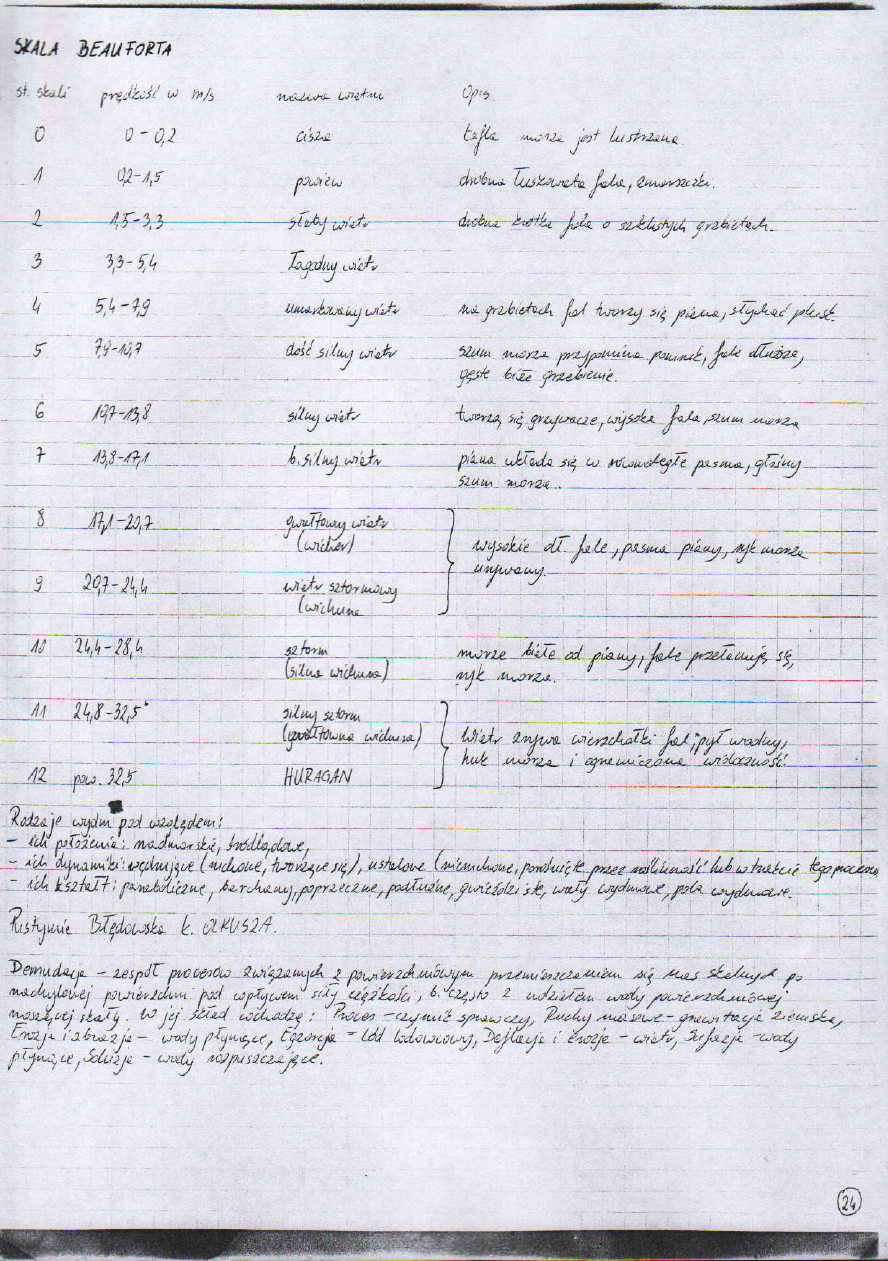 SKALA BEAUFORTA
st. skali prędkość w m/s nazwa wiatru Opis.
0 0-0,2 cisza tafla morza jest lustrzana.
1 0,2-1,5 powiew drobna łuskowata fala, zmarszczki.
2 1,5-3,3 słaby wiatr drobna krótka fala o szklistych grzbietach.
3 3,3-5,4 łagodny wiatr
4 5,4-7,9 umiarkowany wiatr na grzbietach fal tworzy się piana, słychać plusk.
5 7,9-10,7 dość silny wiatr szum morza przypomina pomruk, fale dłuższe,
gęste białe grzebienie.
6 10,7-13,8 silny wiatr tworzą się grzywacze, wysoka fala, szum morza
7 13,8-17,1 b. silny wiatr piana układa się w równoległe pasma, głośny
szum morza.
8 17,1-20,7 gwałtowny wiatr
(wicher)
wysokie dł. fale, pasma piany, ryk morza
urywany.
9 20,7-24,4 wiatr sztormowy
(wichura
10 24,4-28,4 sztorm morze białe od piany, fale przełamują się,
(silna wichura) ryk morza.
11 24,8-32,5 silny sztorm
(gwałtowna wichura)
Wiatr zrywa wierzchołki fal, pył wodny,
huk morza i ograniczona widoczność.
12 pow. 32,5 HURAGAN
Rodzaje wydm pod względem:
- ich położenia: nadmorskie, śródlądowe,
- ich dynamiki: wędrujące (ruchome, tworzące się), ustalone (nieruchome, porośnięte przez roślinność lub w trakcie tego procesu
- ich kształt: paraboliczne, barchany, poprzeczne, podłużne, gwieździste, wały wydmowe, pola wydmowe.
Pustynia Błędowska k. OLKUSZA.
Denudacja - zespół procesów związanych z powierzchniowym przemieszczaniem się mas skalnych po
nachylonej powierzchni pod wpływem siły ciężkości, b. często z udziałem wody powierzchniowej
niosącej skały. W jej skład wchodzą: Proces - czynnik sprawczy, Ruchy masowe - grawitacja ziemska,
Erozja i abrazja - wody płynące, Egzaracja - lód lodowcowy, Deflacja i erozja - wiatr, Sufozja - wody
płynące, Soluzja - wody rozpuszczające.
24